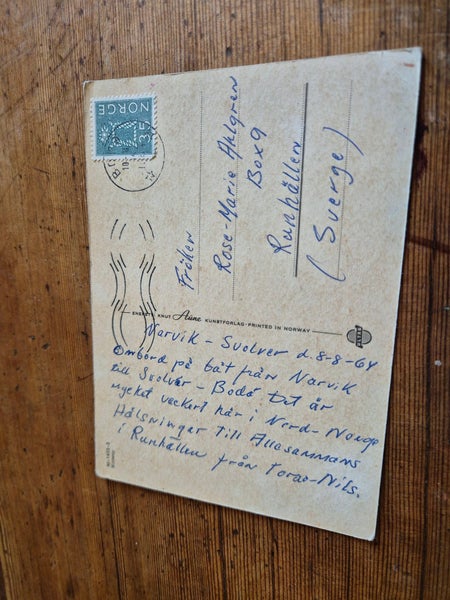 Narvik - Svolver d. 8-8-64
Ombord på båt från Narvik
till Svolvär - Bodö Det är
mycket vackert här i Nord-Norge
Hälsningar till Allasammans
i Runhällen från Tora o-Nils.
ENERETT: KNUT Aune KUNSTFORLAG - PRINTED IN NORWAY
NORGE
Fröken
Rose-Marie Ahlgren
Box 9
Runhällen
(Sverge)